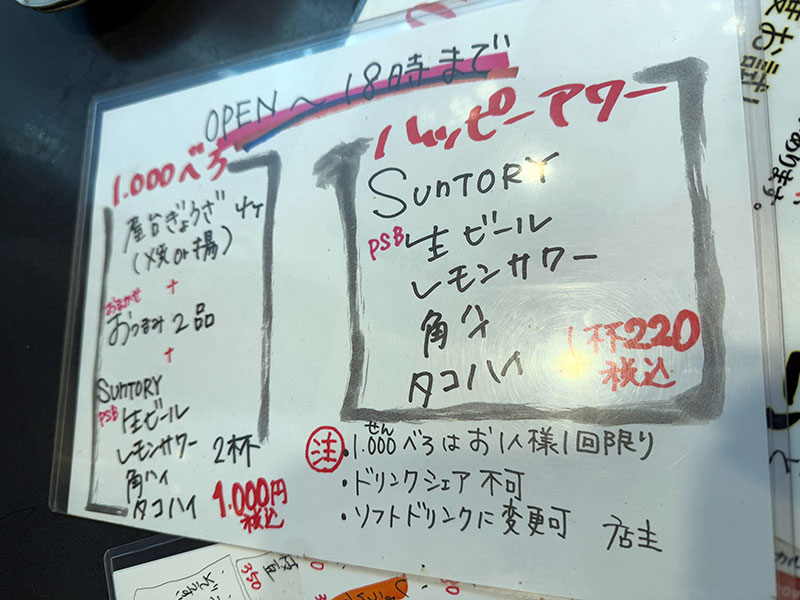 OPEN〜18時まで
1.000べろ
屋台ぎょうざ 4ヶ
(焼or揚)
+
おまかせ
おつまみ2品
+
SUNTORY
PSB 生ビール
レモンサワー 2杯
角ハイ
タコハイ
1.000円
税込
ハッピーアワー
SUNTORY
PSB 生ビール
レモンサワー
角ハイ
タコハイ
1杯220
税込
せん
注・1.000べろはお1人様1回限り
・ドリンクシェア不可
・ソフトドリンクに変更可 店主
350